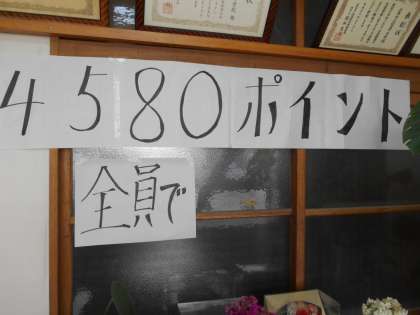 4580ポイント
全員で